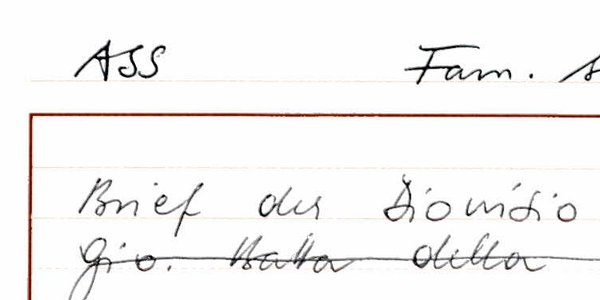 ASS Fam.
Brief des Dionisio
Gio. Batta della